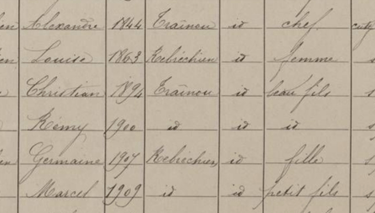 Alexandre 1844 Trainou id chef
Louise 1863 Rebréchien id femme
Christian 1894 Trainou id beau fils
Rémy 1900 id id id
Germaine 1907 Rebréchien id fille
Marcel 1909 id id petit fils